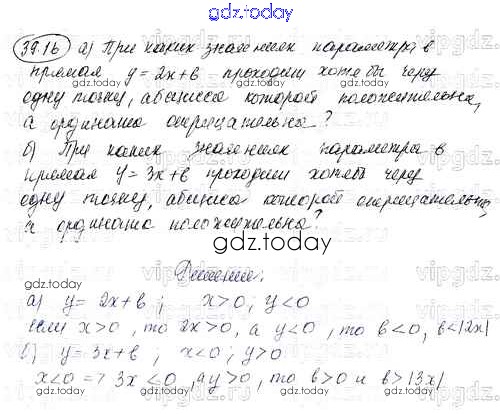 gdz.today
39.16 а) При каких значениях параметра в
прямая y = 2x+в проходит хотя бы через
одну точку, абсцисса которой положительна,
а ордината отрицательна?
б) При каких значениях параметра в
прямая y = 3x+в проходит хотя бы через
одну точку, абсцисса которой отрицательна,
а ордината положительна?
gdz.today
Решение:
а) y = 2x + в ; x>0 ; y<0
если x>0 , то 2x>0, а y<0 , то в<0, в<|2x|
б) y = 3x+в , x<0 ; y>0
x<0 => 3x <0 , а y>0 , то в>0 и в>|3x|
gdz.today